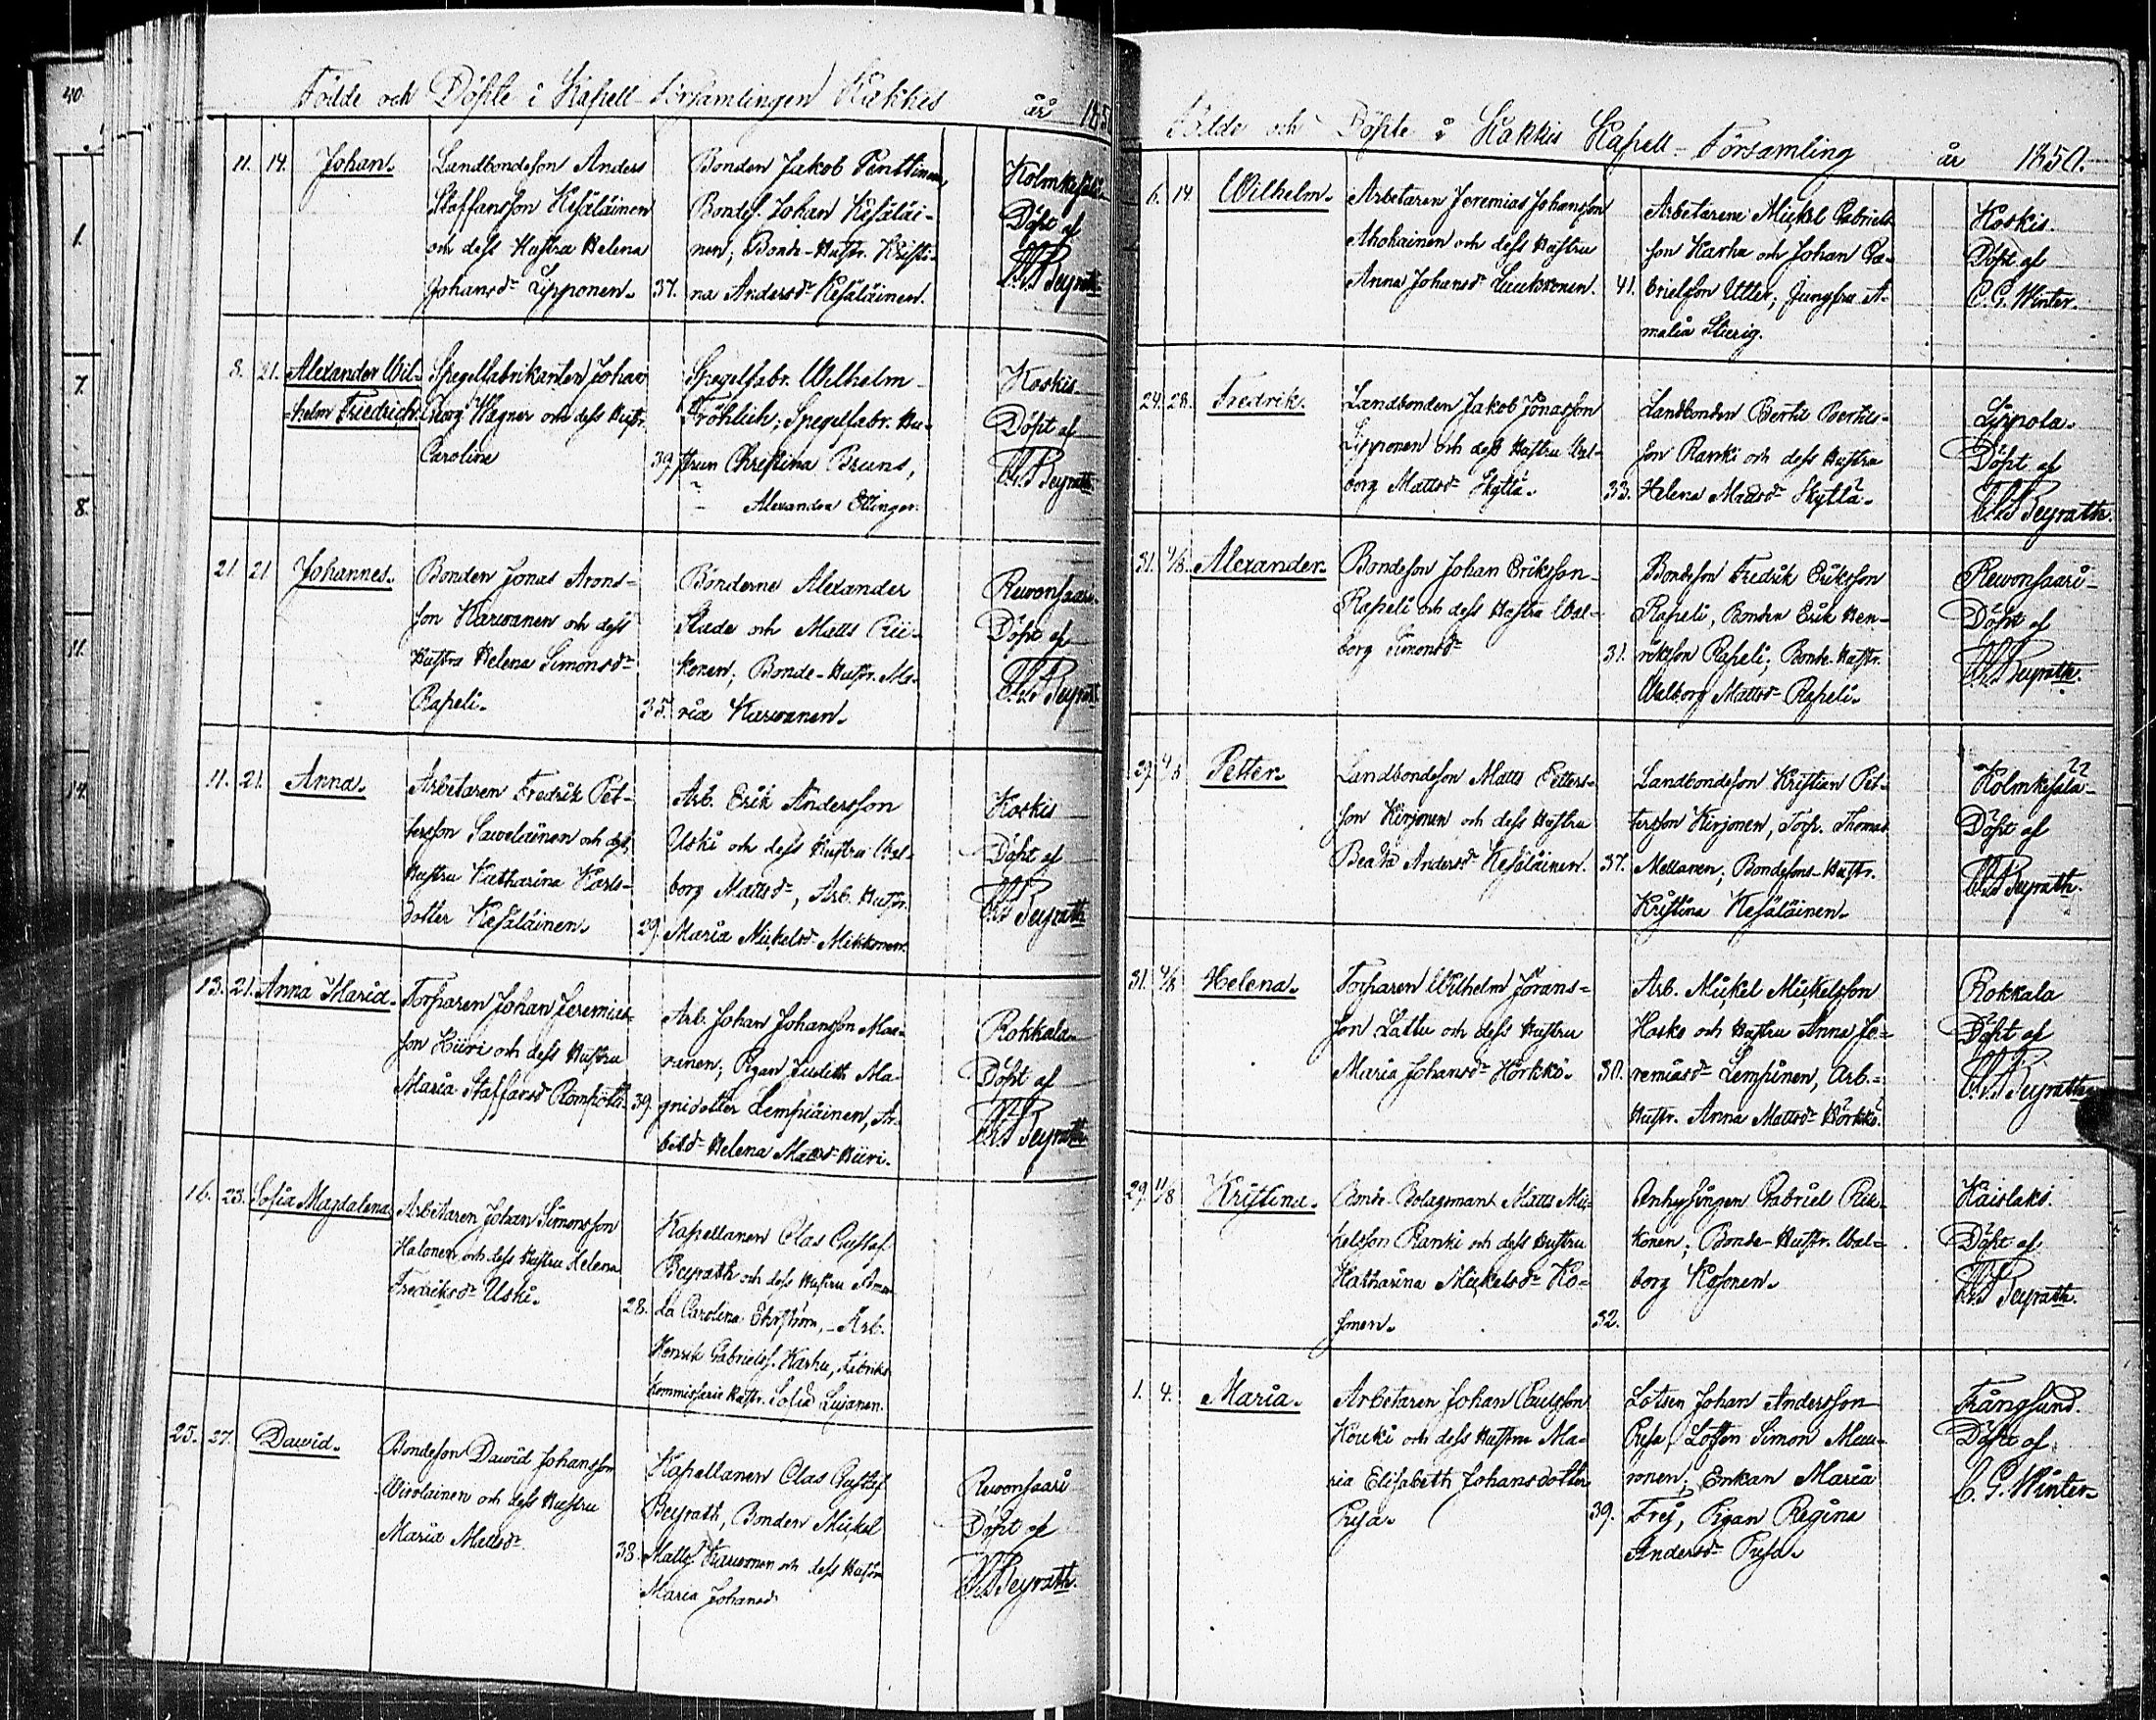 40.
1.
7.
8.
11.
14.
Födde och Döpte i Kapell-Församlingen Kakkis år 185
11. 14. Johan.
Landbondeson Anders
Staffansson Kesäläinen
och dess Hustru Helena
Johansdr Lipponen.
37.
Bonden Jakob Penttinen,
Bondes. Johan Kesäläi-
nen; Bonde-Hustr. Kristi-
na Andersdr Kesäläinen.
Kolmkesälä
Döpt af
Beyrath
8. 21. Alexander Wil-
=helm Friedrich.
Spegelfabrikanten Johan
Georg Wagner och dess Hustr.
Caroline
39.
Spegelfabr. Wilhelm
Fröhlich; Spegelfabr. Hu-
strun Christina Bruns,
Alexandra Ettinger.
Koskis
Döpt af
Beyrath
21. 21 Johannes.
Bonden Jonas Arons-
son Karwanen och dess
Hustru Helena Simonsdr
Rapeli.
35.
Bönderne Alexander
Skade och Matts Rii-
konen; Bonde-Hustr. Ma-
ria Karwanen.
Rewonsaari
Döpt af
Beyrath
11. 21. Anna.
Arbetaren Fredrik Pet-
tersson Saweläinen och dess
Hustru Katharina Karls-
dotter Kesäläinen.
29.
Arb. Erik Andersson
Uski och dess Hustru Wal-
borg Mattsdr, Arb. Hustr.
Maria Mickelsdr Mikkonen.
Koskis
Döpt af
Beyrath
13. 21. Anna Maria.
Torparen Johan Jeremias-
son Hiiri och dess Hustru
Maria Staffansd Rompötti.
39.
Arb. Johan Johansson Mau-
ranen; Pigan Judith Ma-
gnidotter Lempiäinen, Ar-
betsd. Helena Mattsdr Hiiri.
Rokkala
Döpt af
Beyrath
16. 23. Sofia Magdalena
Arbetaren Johan Simonsson
Halonen och dess Hustru Helena
Fredriksdr Uski.
28.
Kapellanen Clas Gustaf
Beyrath och dess Hustru Aman-
da Carolina Ekström, Arb.
Henrik Gabrielss. Karhu, Fabriks-
kommissarie Hustr. Sofia Lusanen.
25. 27. Dawid.
Bondeson Dawid Johansson
Wirolainen och dess Hustru
Maria Mattsdr
38.
Kapellanen Clas Gustaf
Beyrath, Bonden Mickel
Matts Karwonen och dess Hustru
Maria Johansdr
Rewonsaari
Döpt af
Beyrath.
Födde och Döpte i Kakkis Kapell-Församling år 1850.
6. 14 Wilhelm.
Arbetaren Jeremias Johansson
Ahokainen och dess Hustru
Anna Johansdr Luukkonen.
41.
Arbetarene Mickel Gabriels-
son Karhu och Johan Ga-
brielsson Utter; Jungfru A-
malia Stierig.
Koskis.
Döpt af
C. G. Winter.
24. 28. Fredrik.
Landbonden Jakob Jonasson
Lipponen och dess Hustru Wal-
borg Mattsdr Skyttä.
33.
Landbonden Bertil Bertils-
son Ranki och dess Hustru
Helena Madsdr Skyttä.
Lyppola.
Döpt af
Beyrath.
31. 4/8. Alexander.
Bondeson Johan Eriksson
Rapeli och dess Hustru Wal-
borg Simonsdr
31.
Bondeson Fredrik Eriksson
Rapeli, Bonden Erik Hen-
riksson Rapeli; Bonde-Hustr.
Walborg Mattsdr Rapeli.
Rewonsaari
Döpt af
Beyrath.
29. 4/8 Petter.
Landbondeson Matts Petters-
son Kirjonen och dess Hustru
Beata Andersdr Kesäläinen.
37.
Landbondeson Kristian Pet-
tersson Kirjonen, Torp. Thomas
Mellanen; Bondesons-Hustr.
Kristina Kesäläinen.
Kolmkesälä
Döpt af
Beyrath.
31. 4/8 Helena.
Torparen Wilhelm Jörans-
son Lattu och dess Hustru
Maria Johansdr Hörkkö.
30.
Arb. Mickel Mickelsson
Hosko och Hustru Anna Je-
remiasdr Lempinen, Arb.=
Hustr. Anna Mattsdr Hörkkö.
Rokkala
Döpt af
Beyrath
29. 11/8 Kristina.
Bonde-Bolagsman Matts Mic-
kelsson Ranki och dess Hustru
Katharina Mickelsdr Ko-
sonen.
32.
Anhysingen Gabriel Rii-
konen; Bonde-Hustr. Wal-
borg Kosonen.
Kaislaks.
Döpt af
Beyrath.
1. 4. Maria.
Arbetaren Johan Paulsson
Kouki och dess Hustru Ma-
ria Elisabeth Johansdotter
Pusa.
39.
Lotsen Johan Andersson
Pusa, Lotsen Simon Muu-
ronen; Enkan Maria
Frej, Pigan Regina
Andersdr Pusa.
Trångsund.
Döpt af
C. G. Winter.